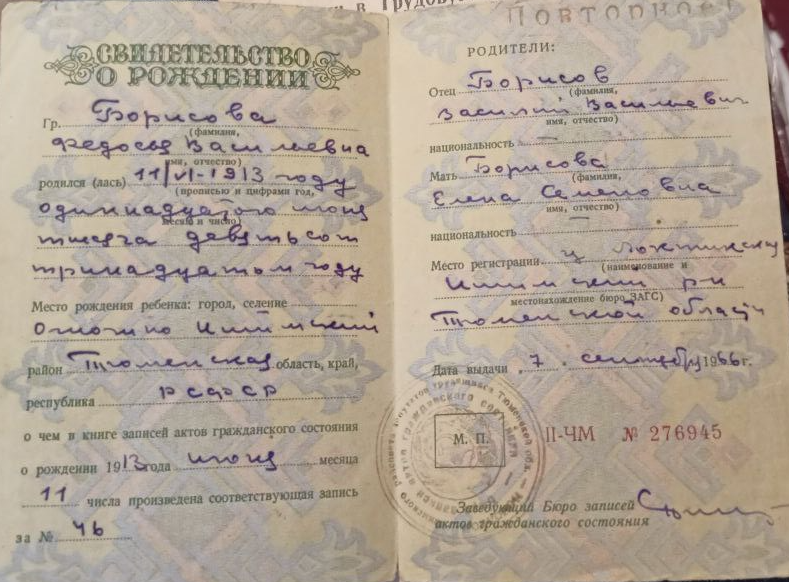 в Трудову
СВИДЕТЕЛЬСТВО
О РОЖДЕНИИ
Гр. Борисова
(фамилия,
Федосья Васильевна
имя, отчество)
родился (лась) 11/VI-1913 году
(прописью и цифрами год,
одиннадцатого июня
месяц и число)
тысяча девятьсот
тринадцатом году
Место рождения ребенка: город, селение
Ишимский
район Тюменская область, край,
республика РСФСР
о чем в книге записей актов гражданского состояния
о рождении 1913 года июня месяца
11 числа произведена соответствующая запись
за № 46
ПОВТОРНОЕ
РОДИТЕЛИ:
Отец Борисов
(фамилия,
Василий Васильевич
имя, отчество)
национальность —
Мать Борисова
(фамилия,
Елена Семеновна
имя, отчество)
национальность —
Место регистрации
(наименование и
Ишимский р-н
местонахождение бюро ЗАГС)
Тюменской области
Дата выдачи 7 сентября 1966 г.
М. П.
II-ЧМ № 276945
Заведующий Бюро записей
актов гражданского состояния